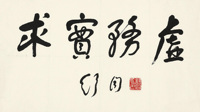 求實務虛